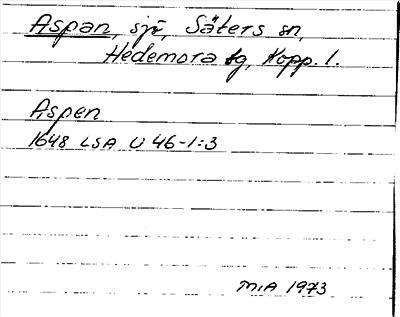 Aspan, sjö, Säters sn,
Hedemora tg, Kopp. l.
Aspen
1648 LSA U 46-1:3
MIA 1973